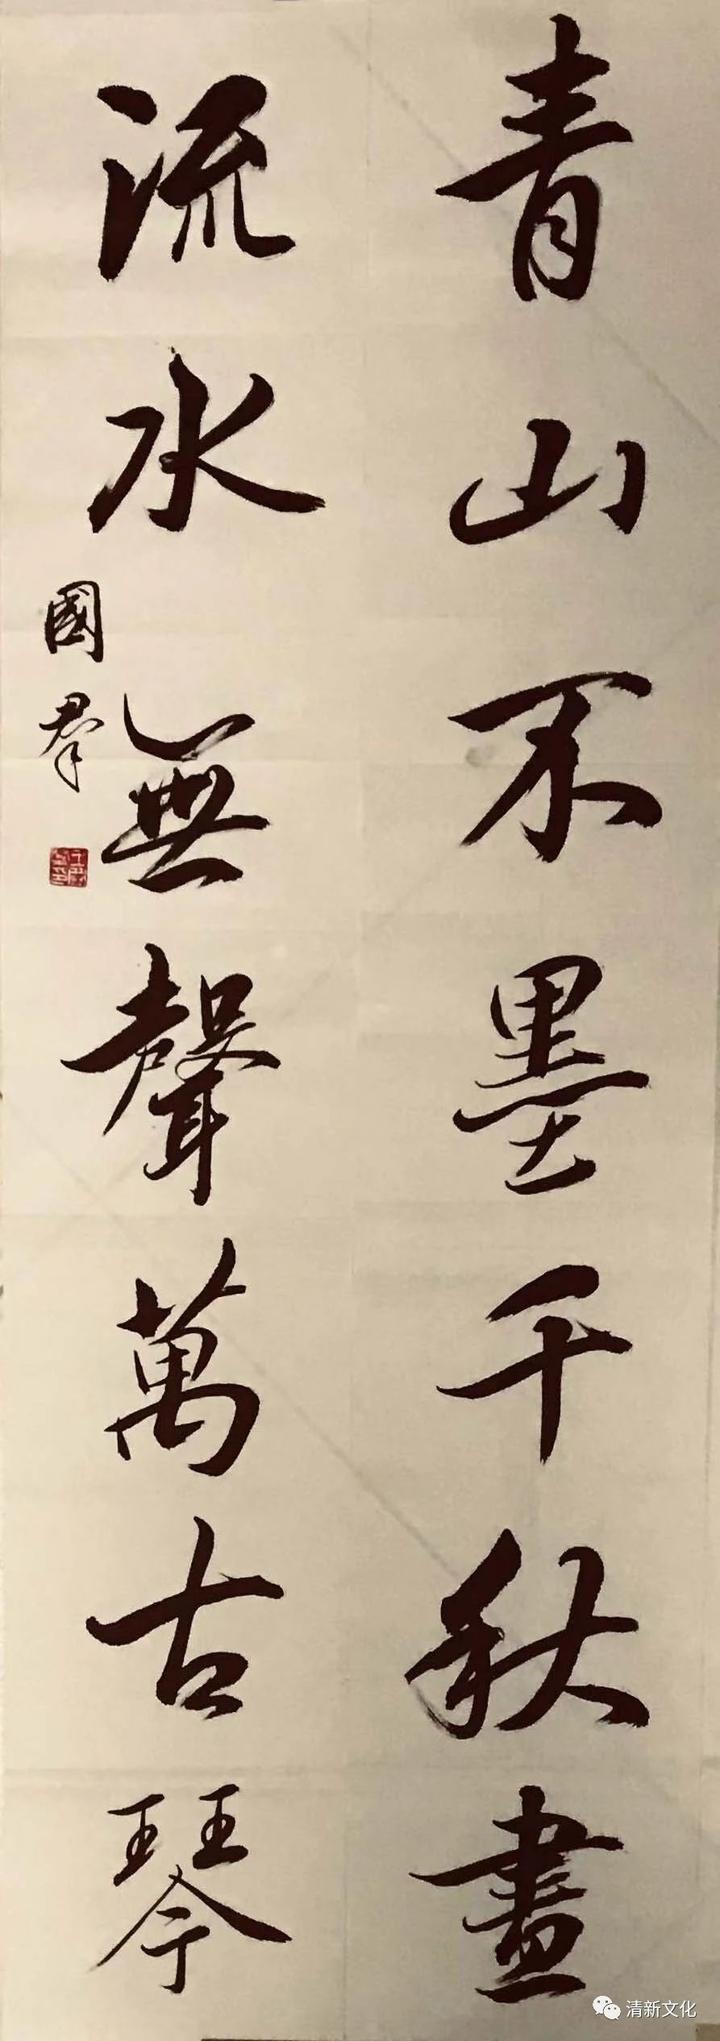 青山不墨千秋畫
流水無聲萬古琴
國群
清新文化